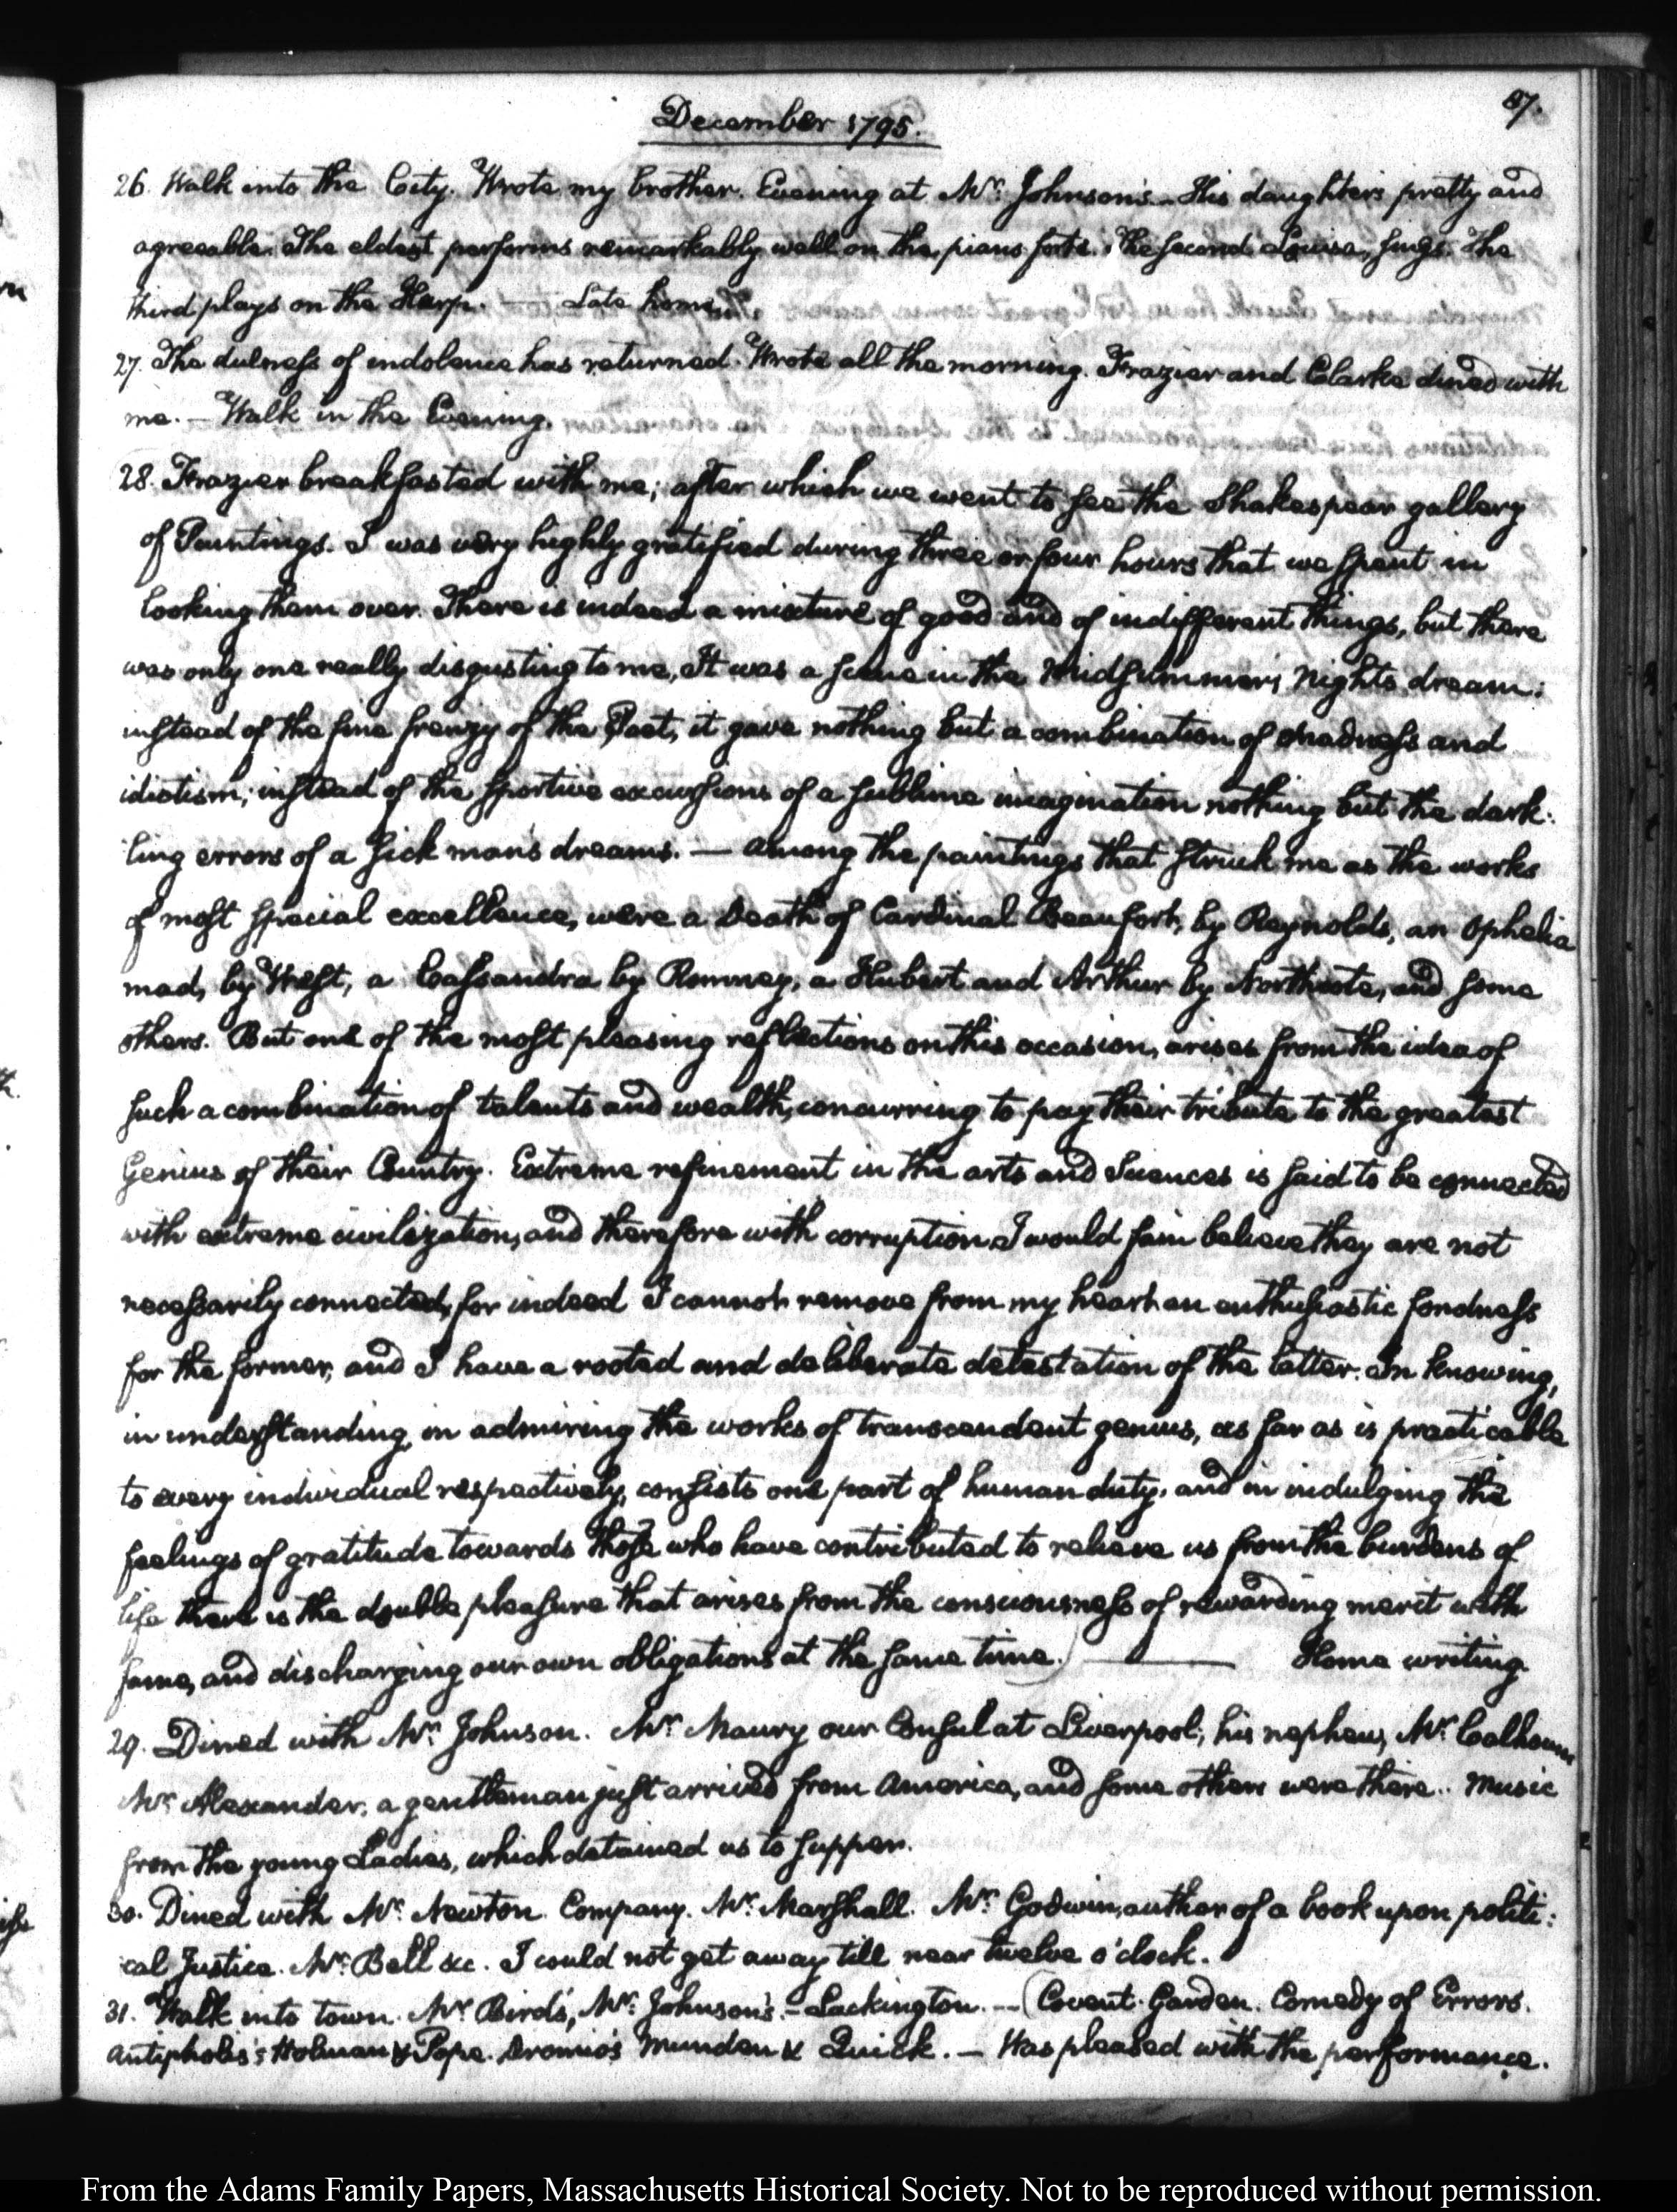 87.
December 1795.
26. Walk into the City. Wrote my brother. Evening at Mr: Johnson's.. His daughters pretty and
agreeable. The eldest performs remarkably well on the piano forte. The second Louisa, sings. The
third plays on the Harp. — Late home.
27. The dulness of indolence has returned. Wrote all the morning. Frazier and Clarke dined with
me. — Walk in the Evening.
28. Frazier breakfasted with me; after which we went to see the Shakespear gallery
of Paintings. I was very highly gratified during three or four hours that we spent in
looking them over. There is indeed a mixture of good and of indifferent things, but there
was only one really disgusting to me, It was a scene in the Midsummer's Nights dream:
instead of the fine frenzy of the Poet, it gave nothing but a combination of Madness and
idiotism; instead of the sportive excursions of a sublime imagination nothing but the dark:
:ling errors of a sick man's dreams. — Among the paintings that struck me as the works
of most special excellence, were a Death of Cardinal Beaufort, by Reynolds, an Ophelia
mad, by West, a Cassandra by Romney, a Hubert and Arthur by Northcote, and some
others. But one of the most pleasing reflections on this occasion, arises from the idea of
such a combination of talents and wealth, concurring to pay their tribute to the greatest
Genius of their Country. Extreme refinement in the arts and Sciences is said to be connected
with extreme civilization, and therefore with corruption I would fain believe they are not
necessarily connected, for indeed I cannot remove from my heart an enthusiastic fondness
for the former, and I have a rooted and deliberate detestation of the latter. In knowing,
in understanding, in admiring the works of transcendent genius, as far as is practicable
to every individual respectively, consists one part of human duty. and in indulging the
feelings of gratitude towards those who have contributed to relieve us from the burdens of
life there is the double pleasure that arises from the consciousness of rewarding merit with
fame, and discharging our own obligations at the same time.) — Home writing.
29. Dined with Mr. Johnson. Mr. Maury our Consul at Liverpool; his nephew, Mr. Calhoun
Mr. Alexander, a gentleman just arrived from America, and some others were there.. Music
from the young Ladies, which detained us to supper.
30. Dined with Mr. Newton. Company. Mr. Marshall. Mr. Godwin, author of a book upon politi:
:cal Justice. Mr. Bell &c. I could not get away till near twelve o'clock.
31. Walk into town. Mr Bird's, Mr. Johnson's. – Lackington. — (Covent-Garden. Comedy of Errors.
Antipholis's Holman & Pope. Dromio's Munden & Quick. — Was pleased with the performance.
From the Adams Family Papers, Massachusetts Historical Society. Not to be reproduced without permission.